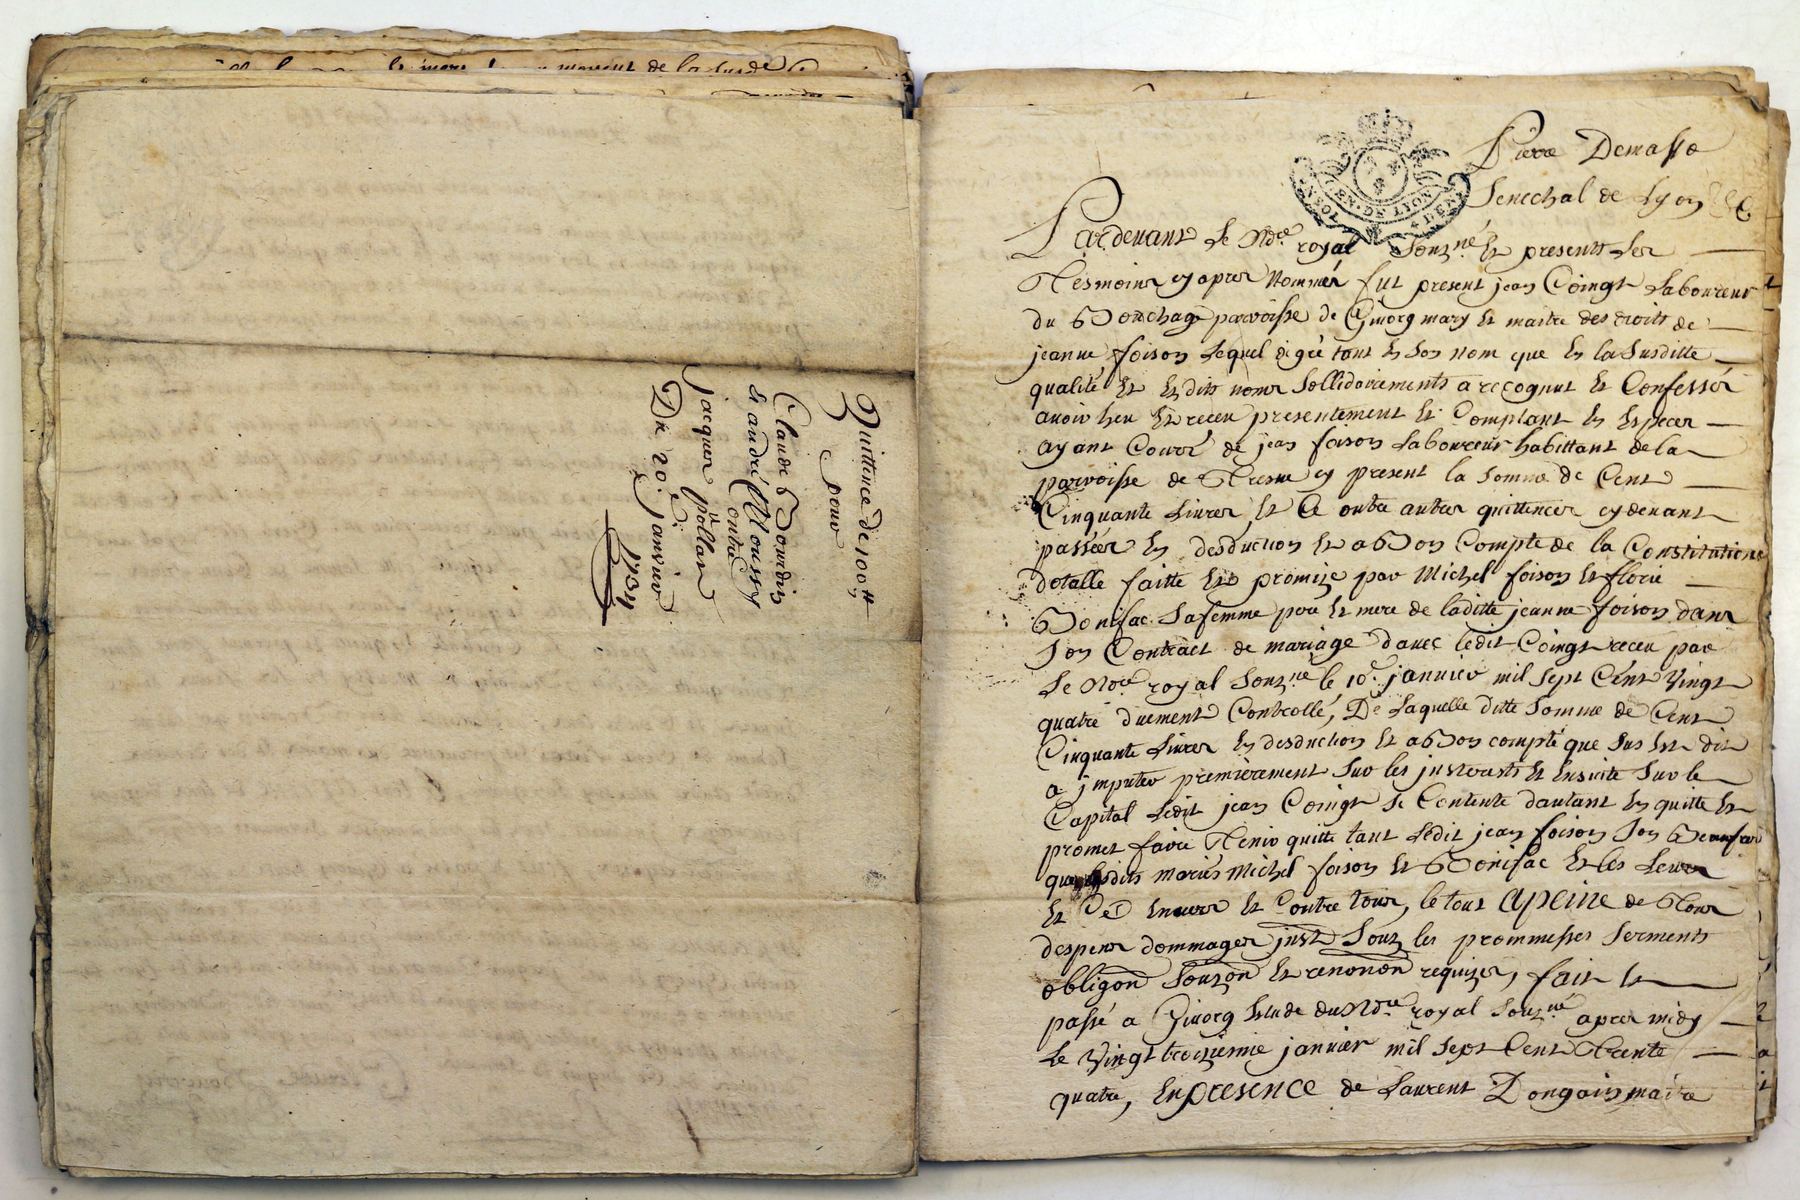 Quittence de 100 ₶
pour
Claude Bourdin
et andré Moussy
contre
jacques Pollas
Du 20.e janvier
1734
GEN. DE LYON
Pierre Demasse
Senechal de Lyon &c
Pardevant Le No.re royal Souz.né Et presents Les
Tesmoins cy apres Nommés fut present jean Coingt Laboureur
du Bouchage parroisse de Givorg mary Et maitre des droits de
jeanne foison Lequel de gré tant En Son nom que En la Susditte
qualité Et Esdits noms Sollidairements a recognut Et Confessés
avoir heu Et receu presentement Et Comptant En Especes
ayant Cours de jean foison Laboureur habittant de la
parroisse de Tresne cy present la Somme de Cent
Cinquante Livres, Et Ce outre autres quittences cydevant
passées En desduction Et a Bon Compte de la Constitution
dotalle faitte Et promize par Michel foison Et florie
Bonifac Sa femme pere Et mere de laditte jeanne foison dans
Son Contract de mariage d'avec ledit Coingt receu par
Le No.re royal Souz.né le 10.e janvier mil Sept Cent Vingt
quatre duement Controllé, De Laquelle ditte Somme de Cent
Cinquante Livres En desduction Et a Bon compte que Sus Est dit
a jmputer premierement Sur les jnterests Et Ensuite Sur le
Capital Ledit jean Coingt Se Contente dautant En quitte Et
promet faire Tenir quitte tant Ledit jean foison Son Beaufrere
que lesdits mariés Michel foison Et Bonifac Et les Leurs
Et Ce Envers Et Contre tous, le tout apeine de Tous
despens dommages jnst Souz les prommesses Serments
obligon Souzon Et renonon requizes, fait Et
passé a Givorg Etude du No.re royal Souz.né apres midy
Le Vingt troisieme janvier mil Sept Cent Trente
quatre, En presence de Laurent Dongain maitre